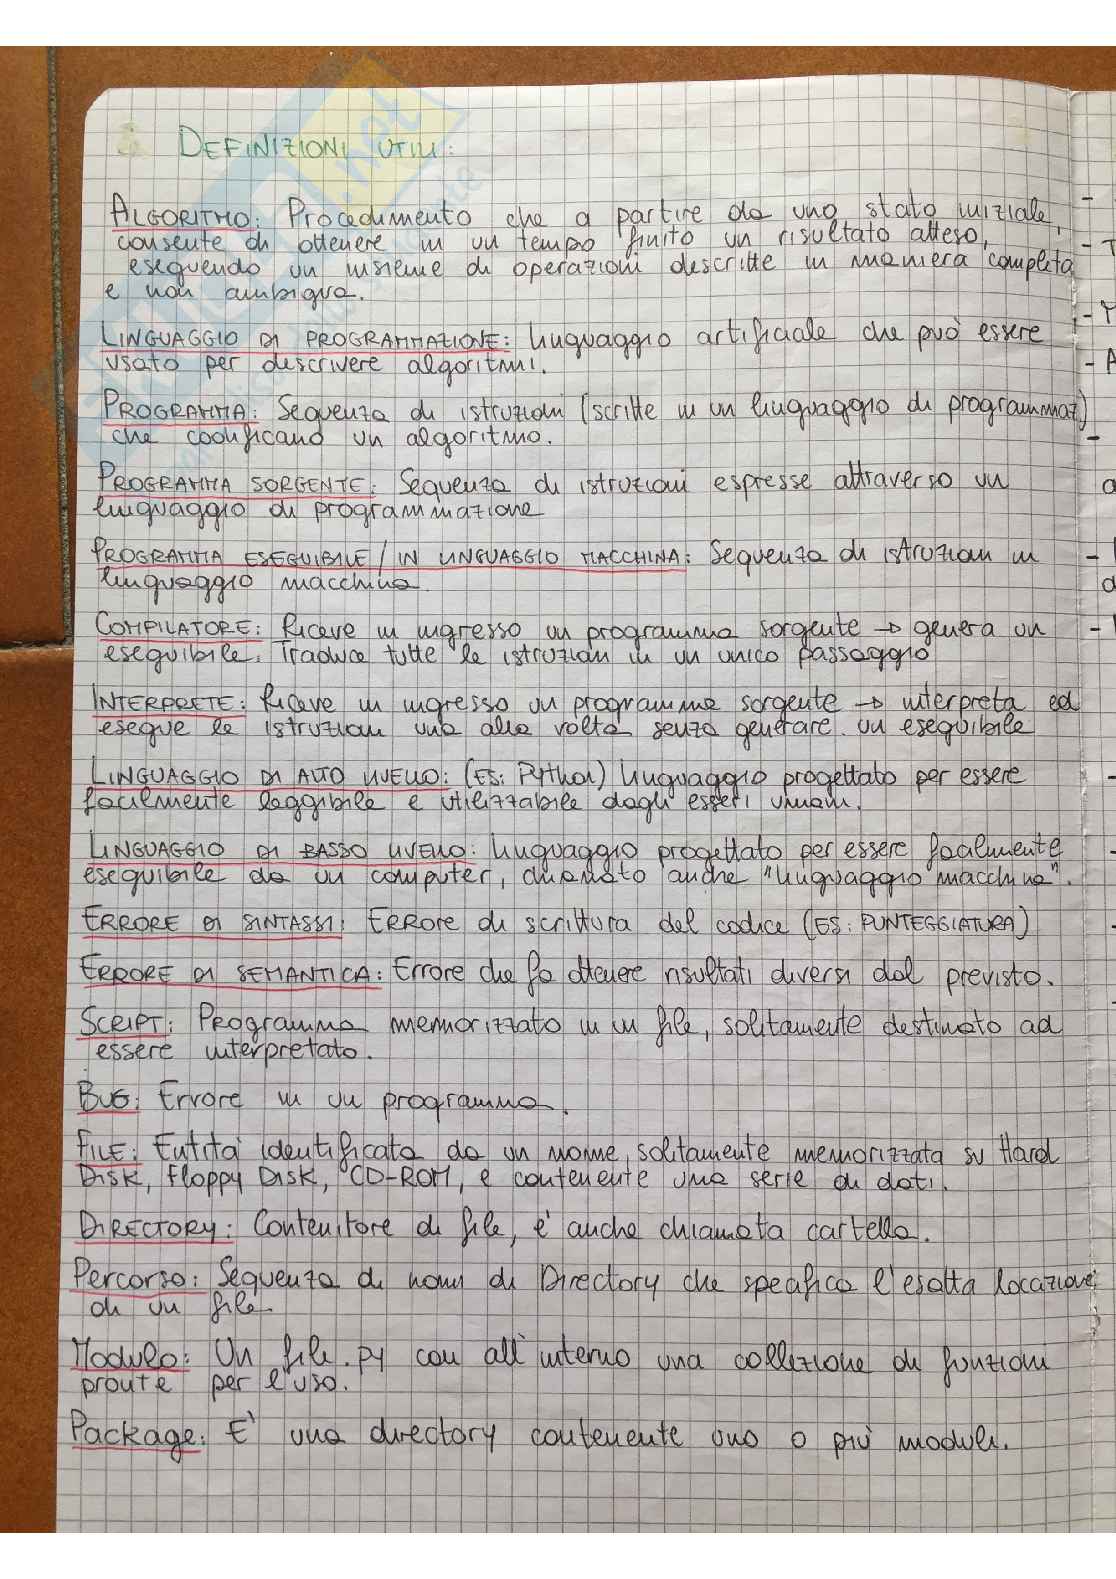 DEFINIZIONI UTILI:
ALGORITMO: Procedimento che a partire da uno stato iniziale,
consente di ottenere in un tempo finito un risultato atteso,
eseguendo un insieme di operazioni descritte in maniera completa
e non ambigua.
LINGUAGGIO DI PROGRAMMAZIONE: linguaggio artificiale che può essere
usato per descrivere algoritmi.
PROGRAMMA: Sequenza di istruzioni (scritte in un linguaggio di programmaz.)
che codificano un algoritmo.
PROGRAMMA SORGENTE: Sequenza di istruzioni espresse attraverso un
linguaggio di programmazione
PROGRAMMA ESEGUIBILE / IN LINGUAGGIO MACCHINA: Sequenza di istruzioni in
linguaggio macchina.
COMPILATORE: Riceve in ingresso un programma sorgente → genera un
eseguibile. Traduce tutte le istruzioni in un unico passaggio
INTERPRETE: Riceve in ingresso un programma sorgente → interpreta ed
esegue le istruzioni una alla volta senza generare un eseguibile
LINGUAGGIO DI ALTO LIVELLO: (ES: Python) linguaggio progettato per essere
facilmente leggibile e utilizzabile dagli esseri umani.
LINGUAGGIO DI BASSO LIVELLO: linguaggio progettato per essere facilmente
eseguibile da un computer, chiamato anche "linguaggio macchina".
ERRORE DI SINTASSI: ERRORE di scrittura del codice (ES: PUNTEGGIATURA)
ERRORE DI SEMANTICA: Errore che fa ottenere risultati diversi dal previsto.
SCRIPT: Programma memorizzato in un file, solitamente destinato ad
essere interpretato.
BUG: Errore in un programma.
FILE: Entità identificata da un nome, solitamente memorizzata su Hard
Disk, Floppy Disk, CD-ROM, e contenente una serie di dati.
DIRECTORY: Contenitore di file, è anche chiamata cartella.
Percorso: Sequenza di nomi di Directory che specifica l'esatta locazione
di un file.
Modulo: Un file .py con all'interno una collezione di funzioni
pronte per l'uso.
Package: E' una directory contenente uno o più moduli.